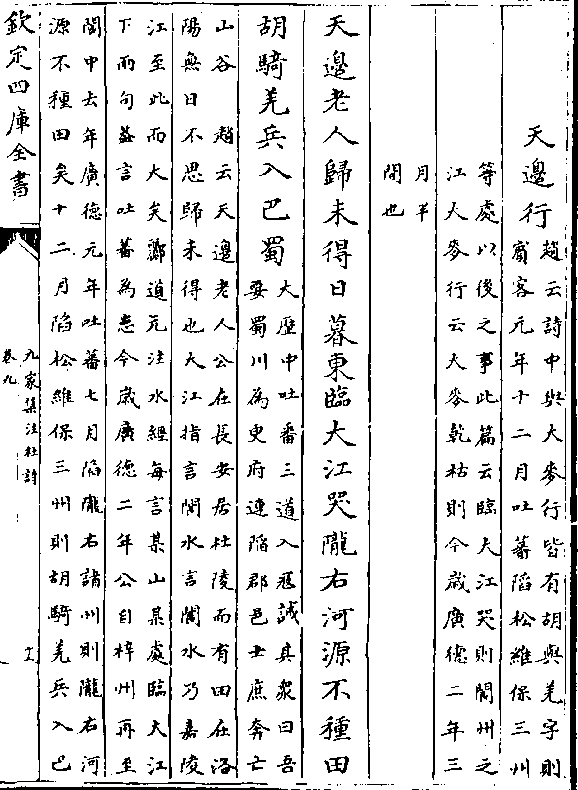 天邊行趙云詩中與大麥行皆有胡與羌字則
寳客元年十二月吐蕃陷松維保三州
等處以後之事此篇云臨大江哭則閬州之
江大麥行云大麥乾枯則今歳廣德二年三
月半
間也
天邊老人歸未得日暮東臨大江哭隴右河源不種田
胡騎羌兵入巴蜀大歷中吐番三道入冦誠其衆曰吾
要蜀川為吏府連陷郡邑士庶奔亡
山谷 趙云天邊老人公在長安居杜陵而有田在洛
陽無日不思歸未得也大江指言閬水言閬水乃嘉陵
江至此而大矣酈道元注水經每言某山某處臨大江
下兩句葢言吐蕃為患今歳廣德二年公自梓州再至
閬中去年廣德元年吐蕃七月陷隴右諸州則隴右河
源不種田矣十二月陷松維保三州則胡騎羌兵入巴
欽定四庫全書
九家集注杜詩
卷九